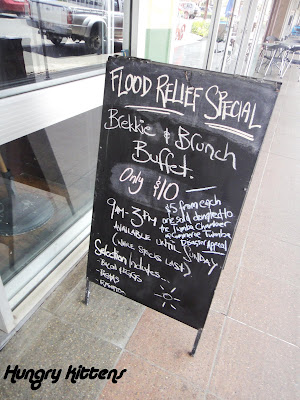 FLOOD RELIEF SPECIAL
Brekkie & Brunch
Buffet.
Only $10
$5 from each
one sold donated to
the Twmba Chamber
of Commerce Twmba
Disaster Appeal
9AM-3PM
AVAILABLE UNTIL SUNDAY
(WHILE STOCKS LAST)
Selection Includes..
- BACON & EGGS
Hungry Kittens